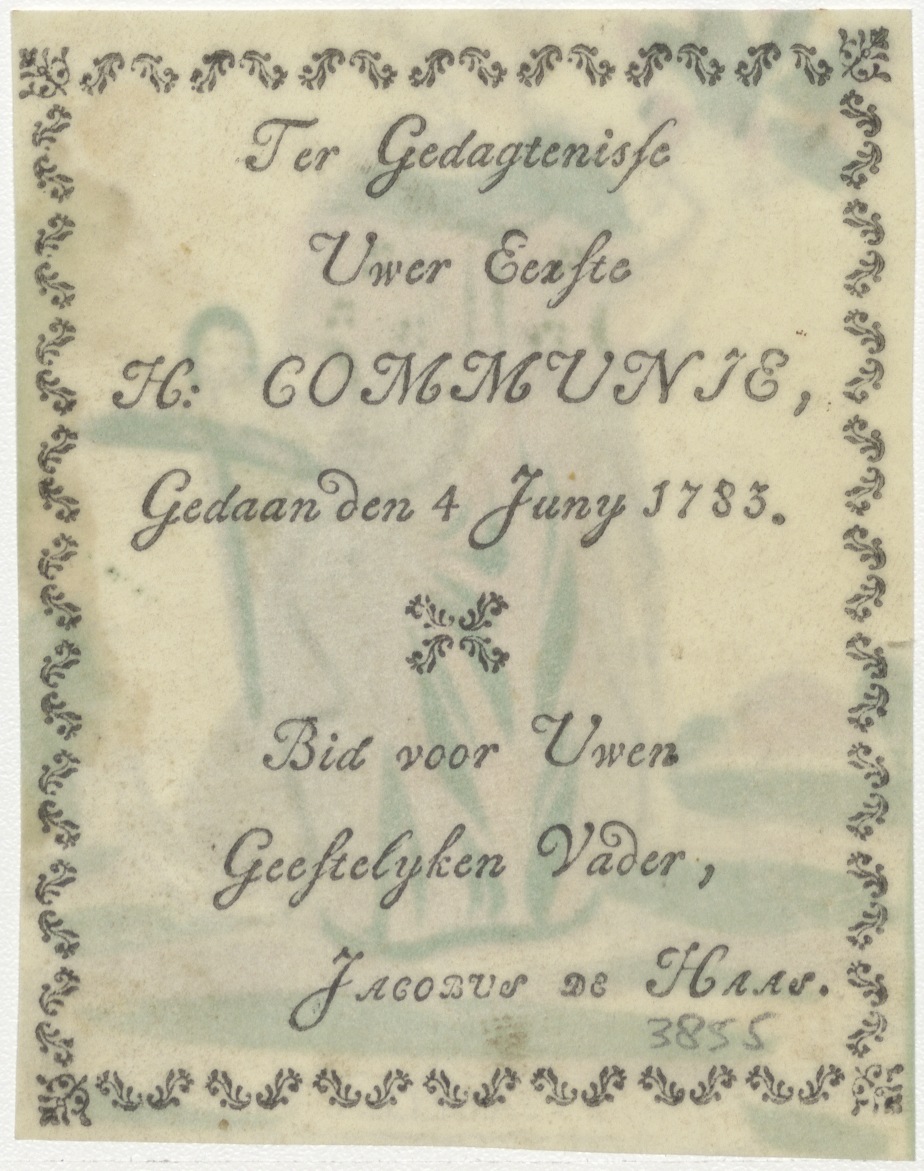 Ter Gedagtenisſe
Uwer Eerſte
H: COMMUNIE,
Gedaan den 4 Juny 1783.
Bid voor Uwen
Geeſtelyken Vader,
JACOBUS DE HAAS.
3855